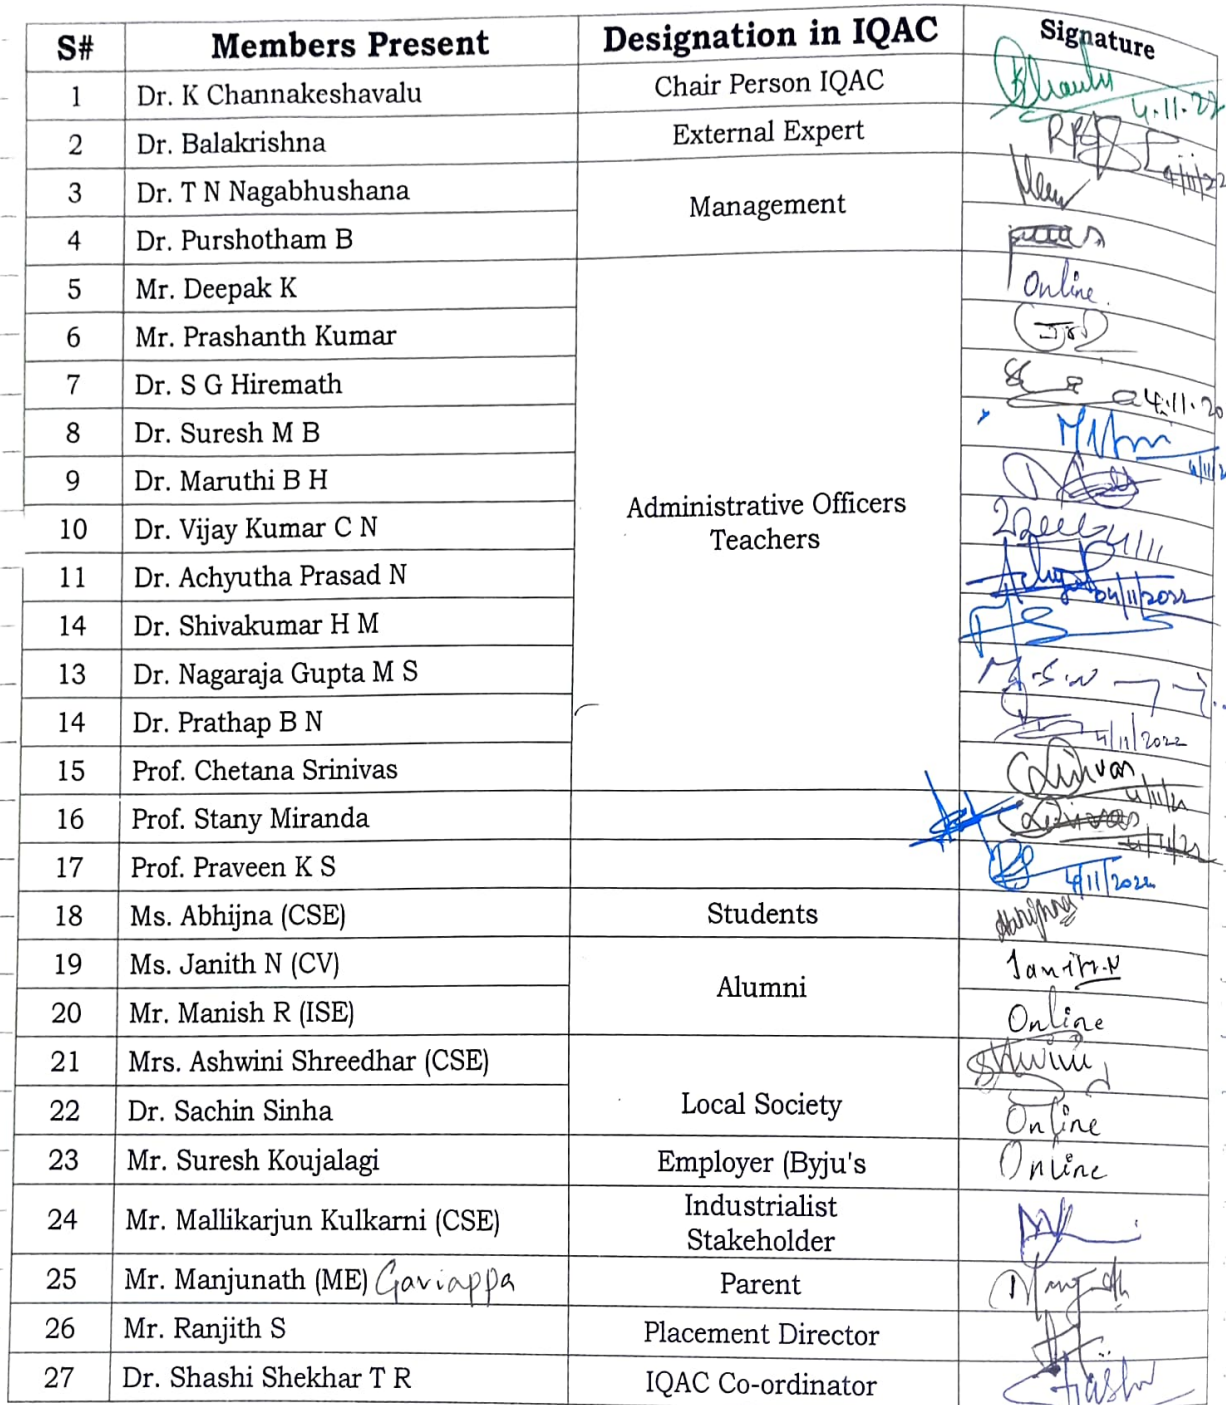 S# Members Present Designation in IQAC Signature
1 Dr. K Channakeshavalu Chair Person IQAC 4.11.22
2 Dr. Balakrishna External Expert 4/11/22
3 Dr. T N Nagabhushana Management
4 Dr. Purshotham B
5 Mr. Deepak K Online.
6 Mr. Prashanth Kumar
7 Dr. S G Hiremath 4.11.20
8 Dr. Suresh M B
9 Dr. Maruthi B H
Administrative Officers
10 Dr. Vijay Kumar C N
Teachers
11 Dr. Achyutha Prasad N 04/11/2022
14 Dr. Shivakumar H M
13 Dr. Nagaraja Gupta M S
14 Dr. Prathap B N 4/11/2022
15 Prof. Chetana Srinivas
16 Prof. Stany Miranda
17 Prof. Praveen K S 4/11/2022
18 Ms. Abhijna (CSE) Students
19 Ms. Janith N (CV) Janith.N
Alumni
20 Mr. Manish R (ISE) Online
21 Mrs. Ashwini Shreedhar (CSE)
Local Society
22 Dr. Sachin Sinha Online
23 Mr. Suresh Koujalagi Employer (Byju's Online
24 Mr. Mallikarjun Kulkarni (CSE) Industrialist
Stakeholder
25 Mr. Manjunath (ME) Gaviappa Parent
26 Mr. Ranjith S Placement Director
27 Dr. Shashi Shekhar T R IQAC Co-ordinator